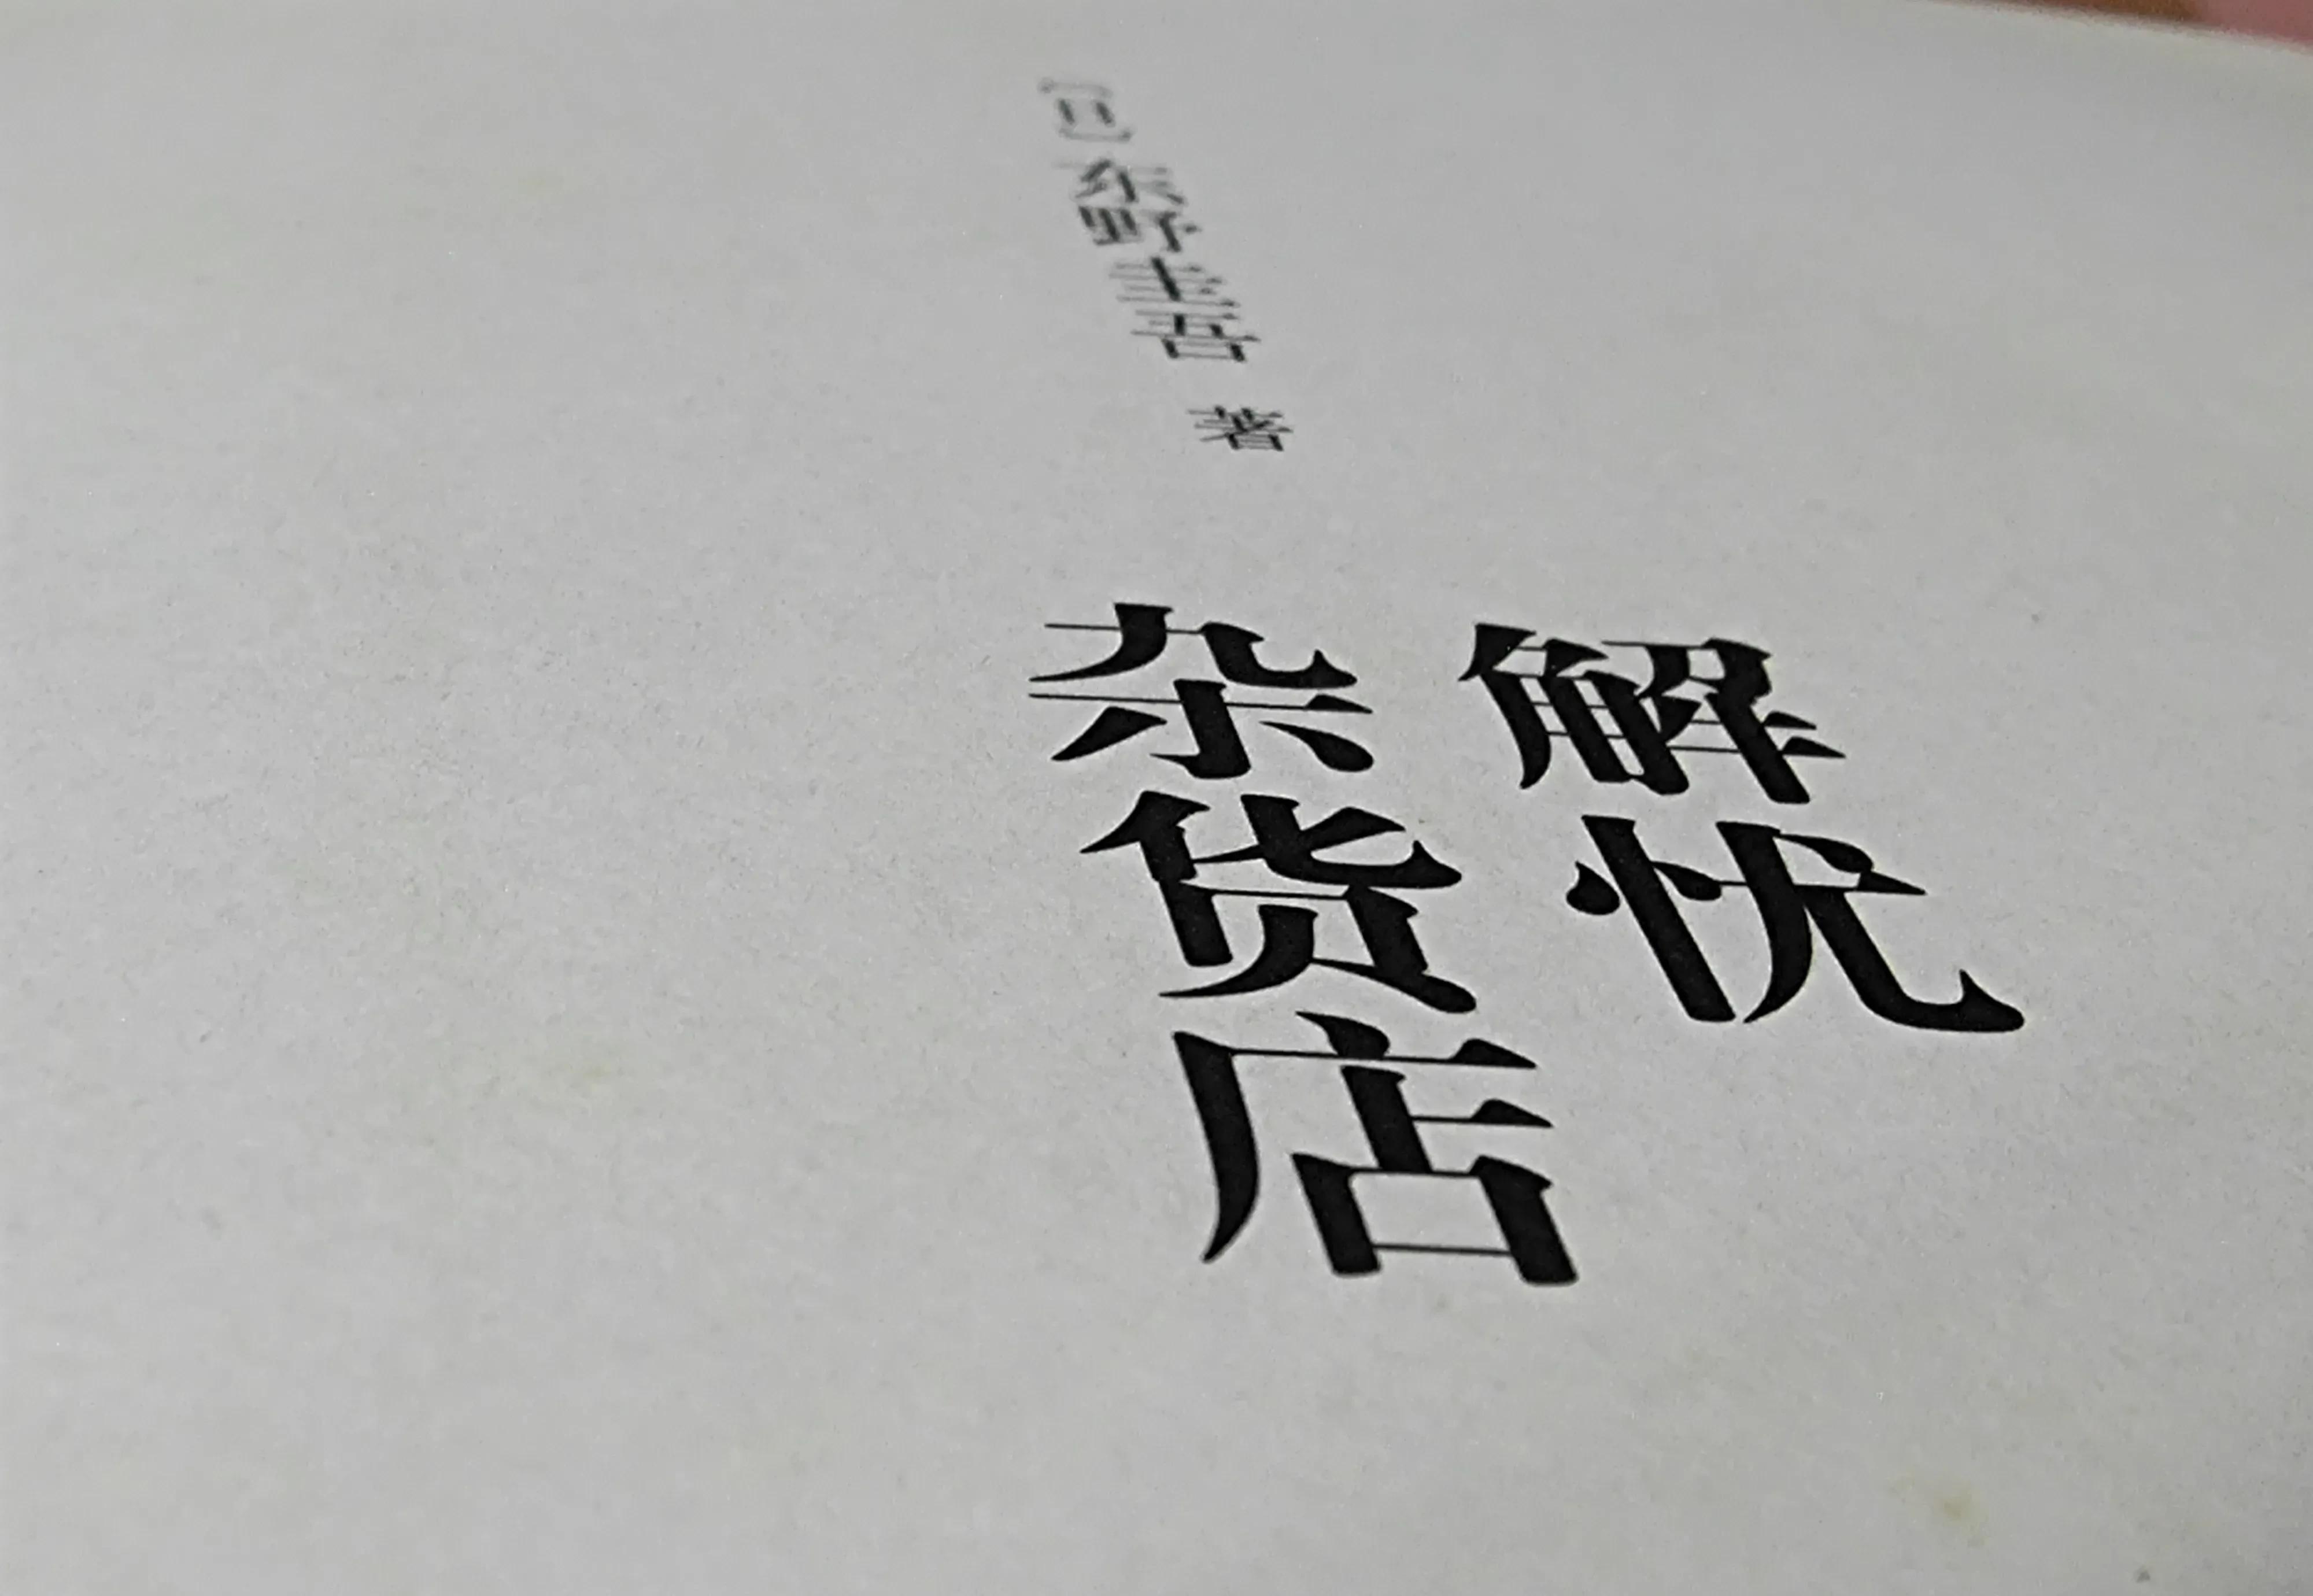 解忧
杂货店
[日]东野圭吾 著